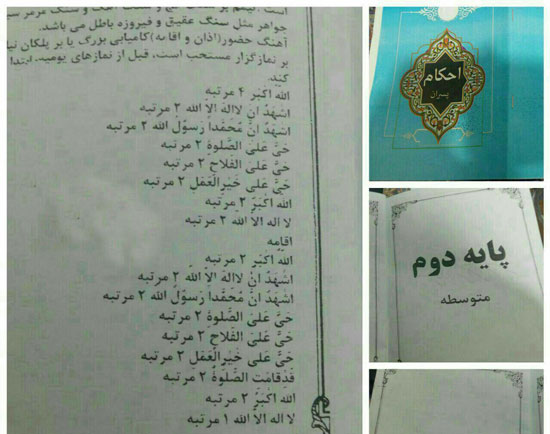 است. تیمم بر سنگ گچ و سنگ آهک و سنگ مرمر
جواهر مثل سنگ عقیق و فیروزه باطل می باشد.
آهنگ حضور(اذان و اقامه)کامیابی بزرگ یا بر پلکان
بر نمازگزار مستحب است، قبل از نمازهای یومیه، ابتدا
کند.
الله اکبر ۴ مرتبه
اشهد ان لااله الا الله ۲ مرتبه
اشهد ان محمدا رسول الله ۲ مرتبه
حی علی الصلوة ۲ مرتبه
حی علی الفلاح ۲ مرتبه
حی علی خیرالعمل ۲ مرتبه
الله اکبر ۲ مرتبه
لا اله الا الله ۲ مرتبه
اقامه
الله اکبر ۲ مرتبه
اشهد ان لااله الا الله ۲ مرتبه
اشهد ان محمدا رسول الله ۲ مرتبه
حی علی الصلوة ۲ مرتبه
حی علی الفلاح ۲ مرتبه
حی علی خیرالعمل ۲ مرتبه
قدقامت الصلوة ۲ مرتبه
الله اکبر ۲ مرتبه
لا اله الا الله ۱ مرتبه
احکام
پسران
پایه دوم
متوسطه